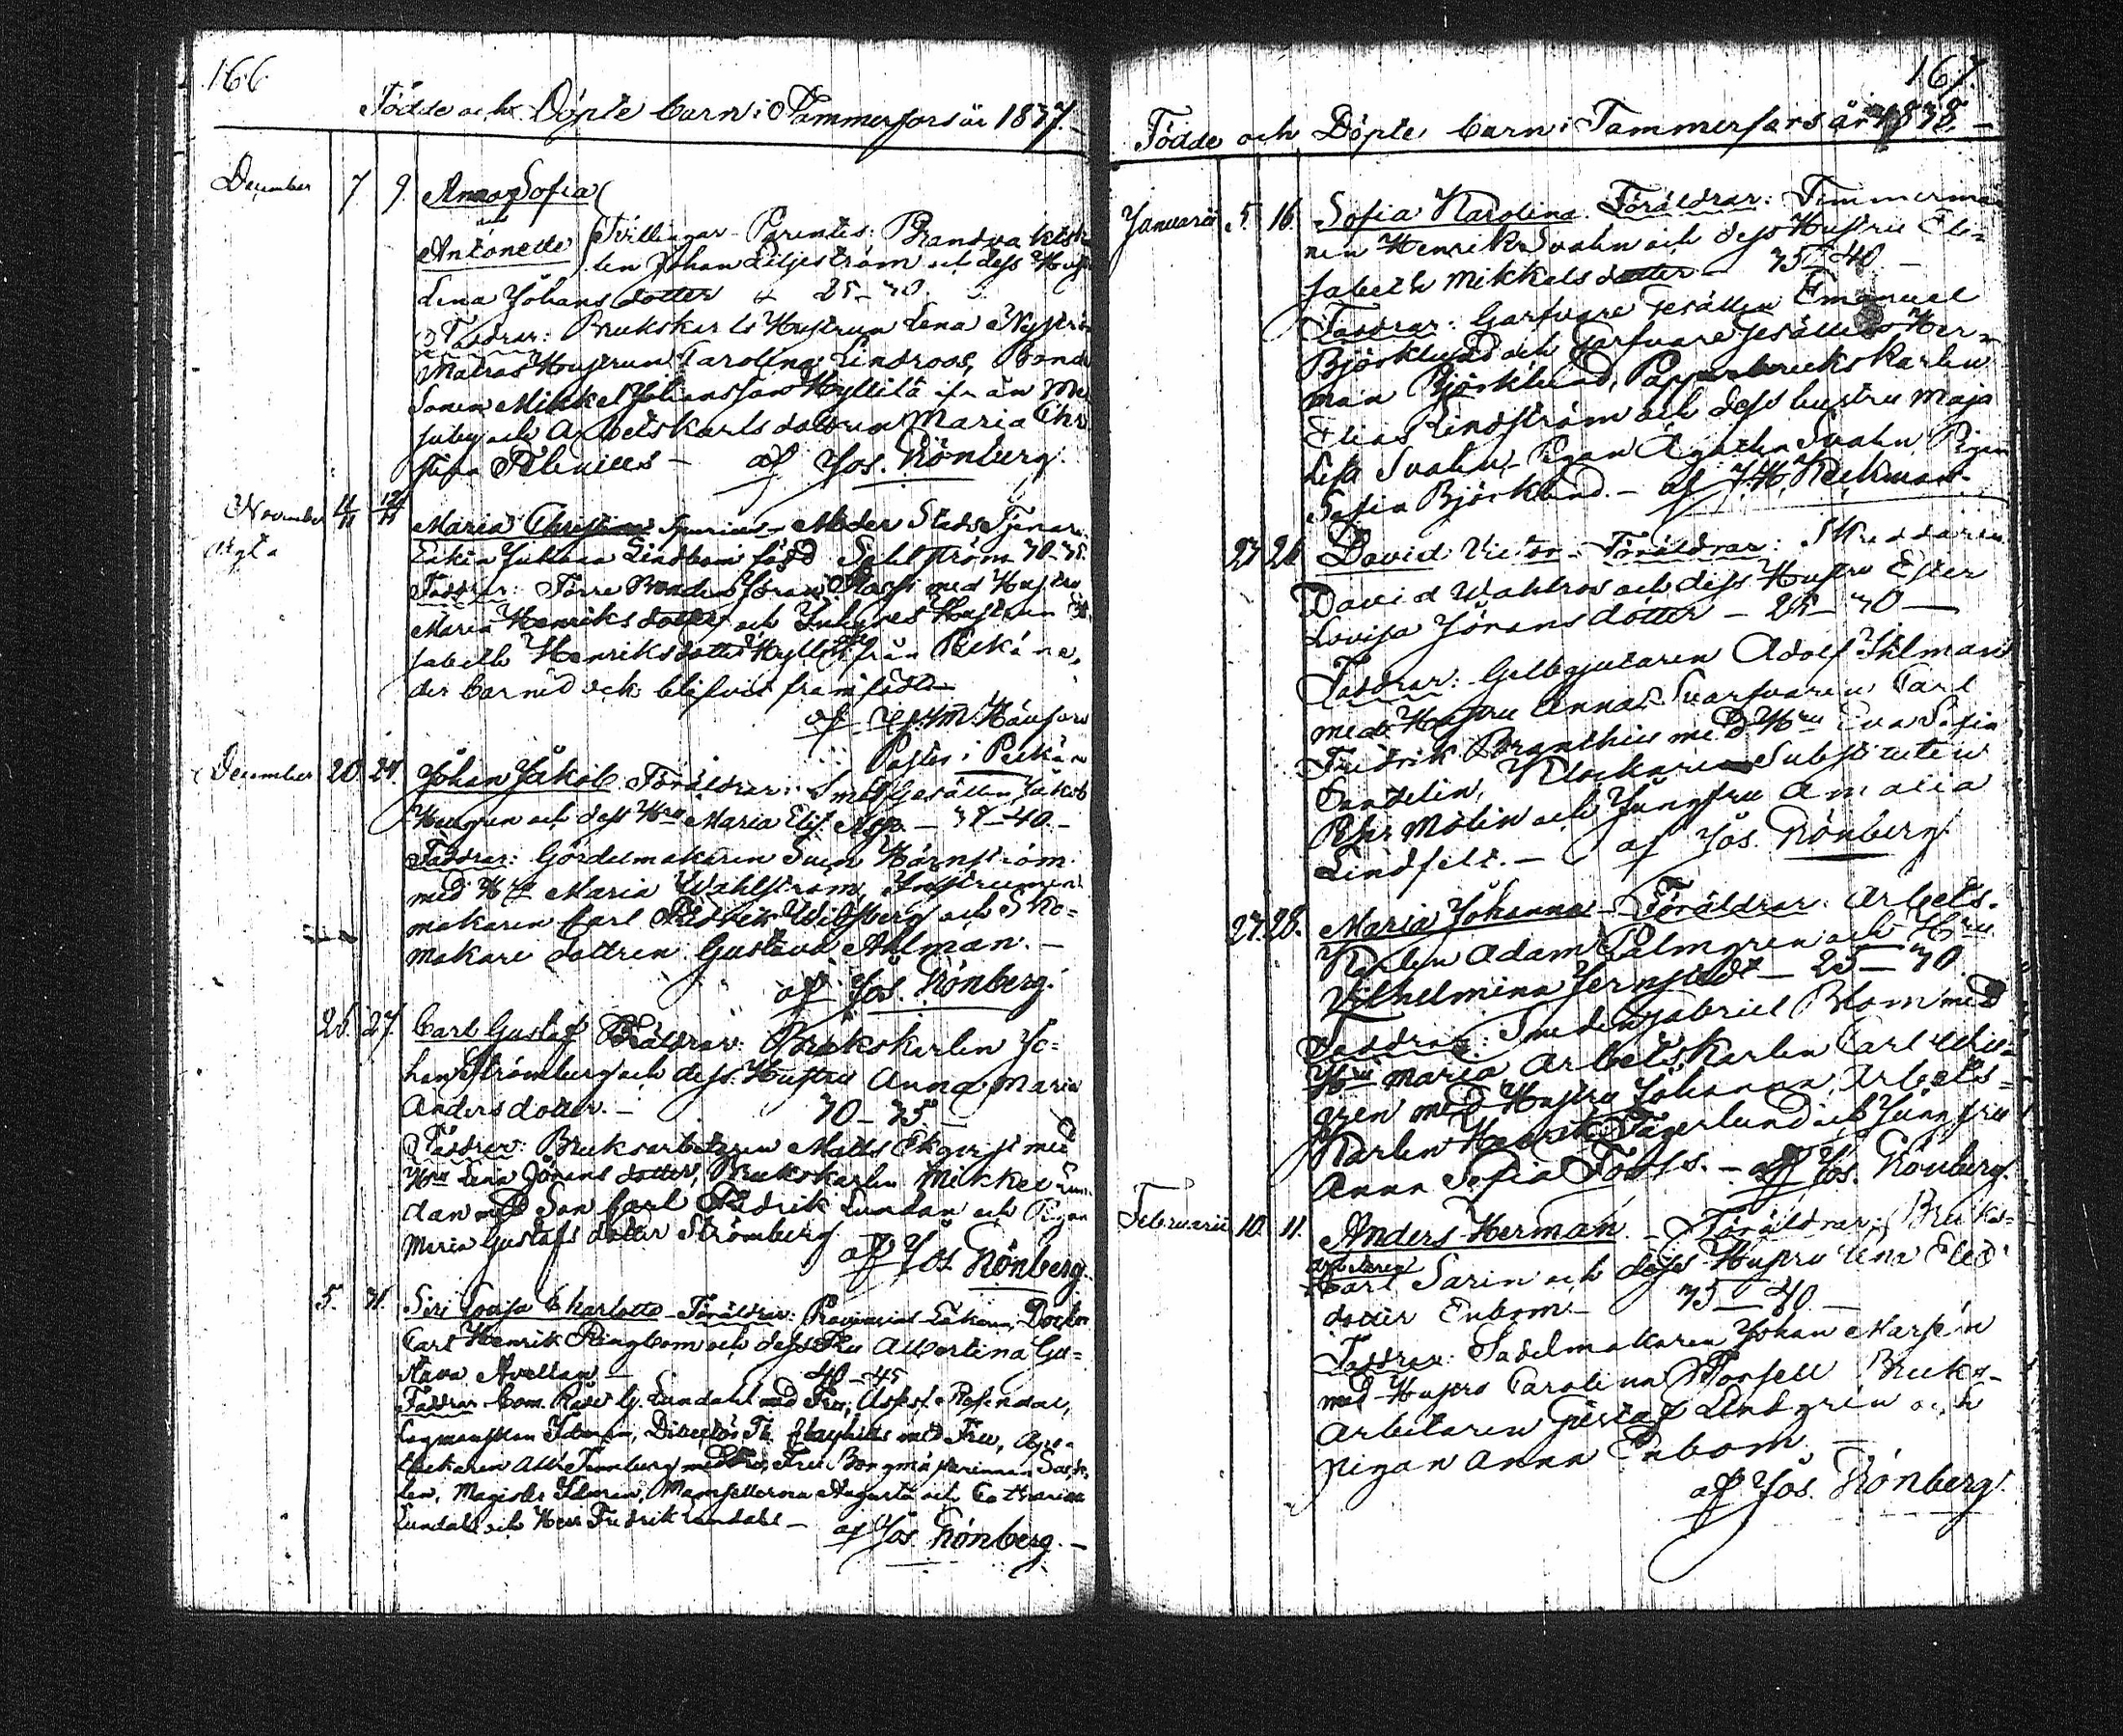 166
Födde och Döpte barn i Tammerfors år 1837.
December 7 9. Anna Sofia
och
Antonette Tvillingar - Parentes: Brandvaktskar
len Johan Liljeström och dess Hustru
Lena Johansdotter 25-30.
Faddrar: Brukskarls Hustrun Lena Nyström
Matras Hustrun Carolina Lindroos, Bonde
Sonen Mikkel Johansson Hyllilä ifrån
by och Arbetskarls dottren Maria Chri
stina - af Jos. Grönberg.
November 11/11 12/11 Maria Christina Spuria - Moder Stads Tjenare
Enkan Johanna Lindbom född 30-35.
Faddrar: Förre Bonden Jöran med Hustru
Maria Henriksdotter och Inhyses Hustrun Eli
sabeth Henriksdotter från Pelkäne,
der barned ock blifvit framfödt.
af
Pastor i Pelkäne
December 20 24. Johan Jakob Föräldrar: Smed Gesällen Jakob
och dess Hru Maria Elis. Asp. - 35-40.-
Faddrar: Gördelmakaren Sven Hörnström
med Hru Maria Wahlström, Instrument
makaren Carl Fredrik och Sko=
makare dottren Gustava Ahlman. -
af Jos. Grönberg.
26. 27. Carl Gustaf Föräldrar: Brukskarlen Jo=
han Strömberg och dess Hustru Anna Maria
Andersdotter. - 30-35 -
Faddrar: Bruksarbetaren Matts Ekqvist med
Hru Lena Jöransdotter, Brukskarlen Mikkel Lun
dan med Son Carl Fredrik Lundan och Pigan
Maria Gustafsdotter Strömberg
af Jos Grönberg.
5. 31. Siri Lovisa Charlotta - Föräldrar: Provincial Läkaren, Doctor
Carl Henrik Ringbom och dess Fru Albertina Gu=
stava Avellan - 40-45
Faddrar Com. Rådet G. Lundahl med Fru, Asses. Rosendal,
Lagmanskan Idman, Director med Fru, Apo=
thekaren Alb. Tennberg med Fru, Fru Borgmästarinnan
len, Magister Idman, Mamsellerna Augusta och Catharina
Lundahl och Herr Fredrik Lundahl - af Jos. Grönberg. -
167.
Födde och Döpte barn i Tammerfors år 1838. -
Januarii 5. 16. Sofia Karolina. Föräldrar: Timmerman
nen Henrik Svahn och dess Hustru Eli=
sabeth Mikkelsdotter - 35-40 -
Faddrar: Garfvare Gesällen Emanuel
Björklund och Garfvare Gesällen Her=
man Björklund, Pappersbrukskarlen
Elias Lindström och dess hustru Maja
Lisa Svahn, Pigan Agatha Svahn Pigan
Sofia Björklund. - af J.H.
23 26 David Victor - Föräldrar: Skreddaren
David Wahlros och dess Hustru Ester
Lovisa Jöransdotter - 25-30 -
Faddrar: Gelbgjutaren Adolf Ihlman
med Hustru Anna. Svarfvaren Carl
Fredrik Branthin med Hru Eva Sofia
Sandelin, Klockare Substituten
Molin och Jungfru Amalia
Lindfelt. - af Jos. Grönberg.
27. 28. Maria Johanna - Föräldrar: Arbets-
Karlen Adam Palmgren och Hru
Vilhelmina Jernfeldt - 25-30
Faddrar: Smeden Gabriel Blom med
Hru Maria Arbetskarlen Carl
gren med Hustru Johanna, Arbets=
Karlen Henrik Fagerlund och Jungfru
Anna Sofia Forss. - af Jos. Grönberg.
Februarii 10. 11. Anders Herman. - Föräldrar: Bruks=
arbetaren
Carl Sarin och dess Hustru Lena
dotter Enbom - 35-40 -
Faddrar: Sadelmakaren Johan Marsen
med Hustru Carolina Forsell Bruks-
arbetaren Gustaf Lindgren och
pigan Anna Enbom. -
af Jos. Grönberg.